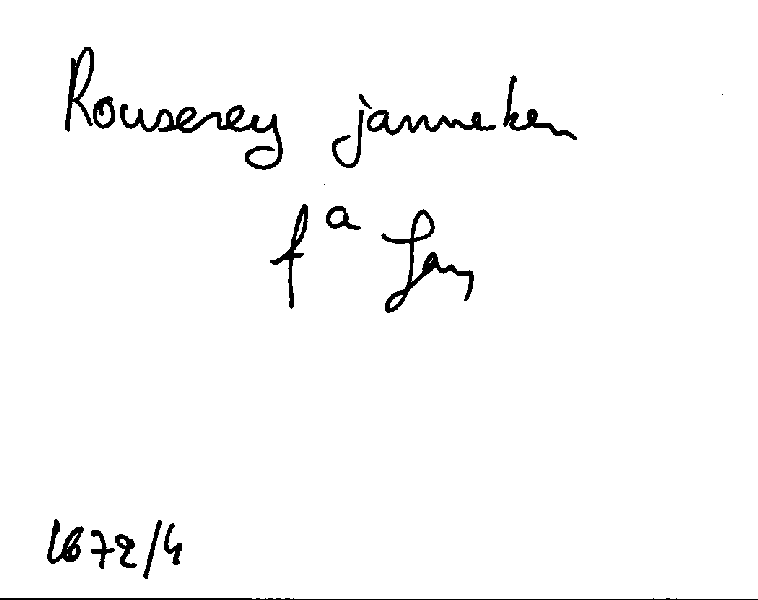 Rouserey janneken
fa Jan
1672/4